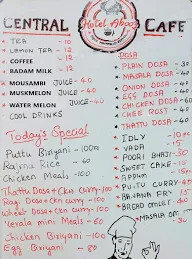 CENTRAL Hotel Aboo's CAFE
TEA - 10
LEMON TEA - 10
COFFEE - 12
BADAM MILK - 15
MOUSAMBI JUICE - 40
MUSKMELON JUICE - 40
WATER MELON JUICE - 40
COOL DRINKS
Today's Special
Puttu Biriyani - 100
Rajma Rice - 60
Chicken Meals - 100
Thattu Dosa + Ckn Curry - 100
Ragi Dosa + Ckn Curry - 100
Wheat Dosa + Ckn Curry - 100
Kerala mini Meals - 60
Chicken Biriyani - 100
Egg Biriyani - 80
DOSA
PLAIN DOSA - 30
MASALA DOSA - 40
ONION DOSA - 60
EGG DOSA - 50
CHICKEN DOSA - 60
GHEE ROST - 50
THATTU DOSA - 40
IDLY - 10
VADA - 15
POORI BHAJI - 30
SWEET CAKE - 10
APPAM
PUTTU CURRY - 40
BANANA FRY
BREAD OMLET - 30
MASALA OM